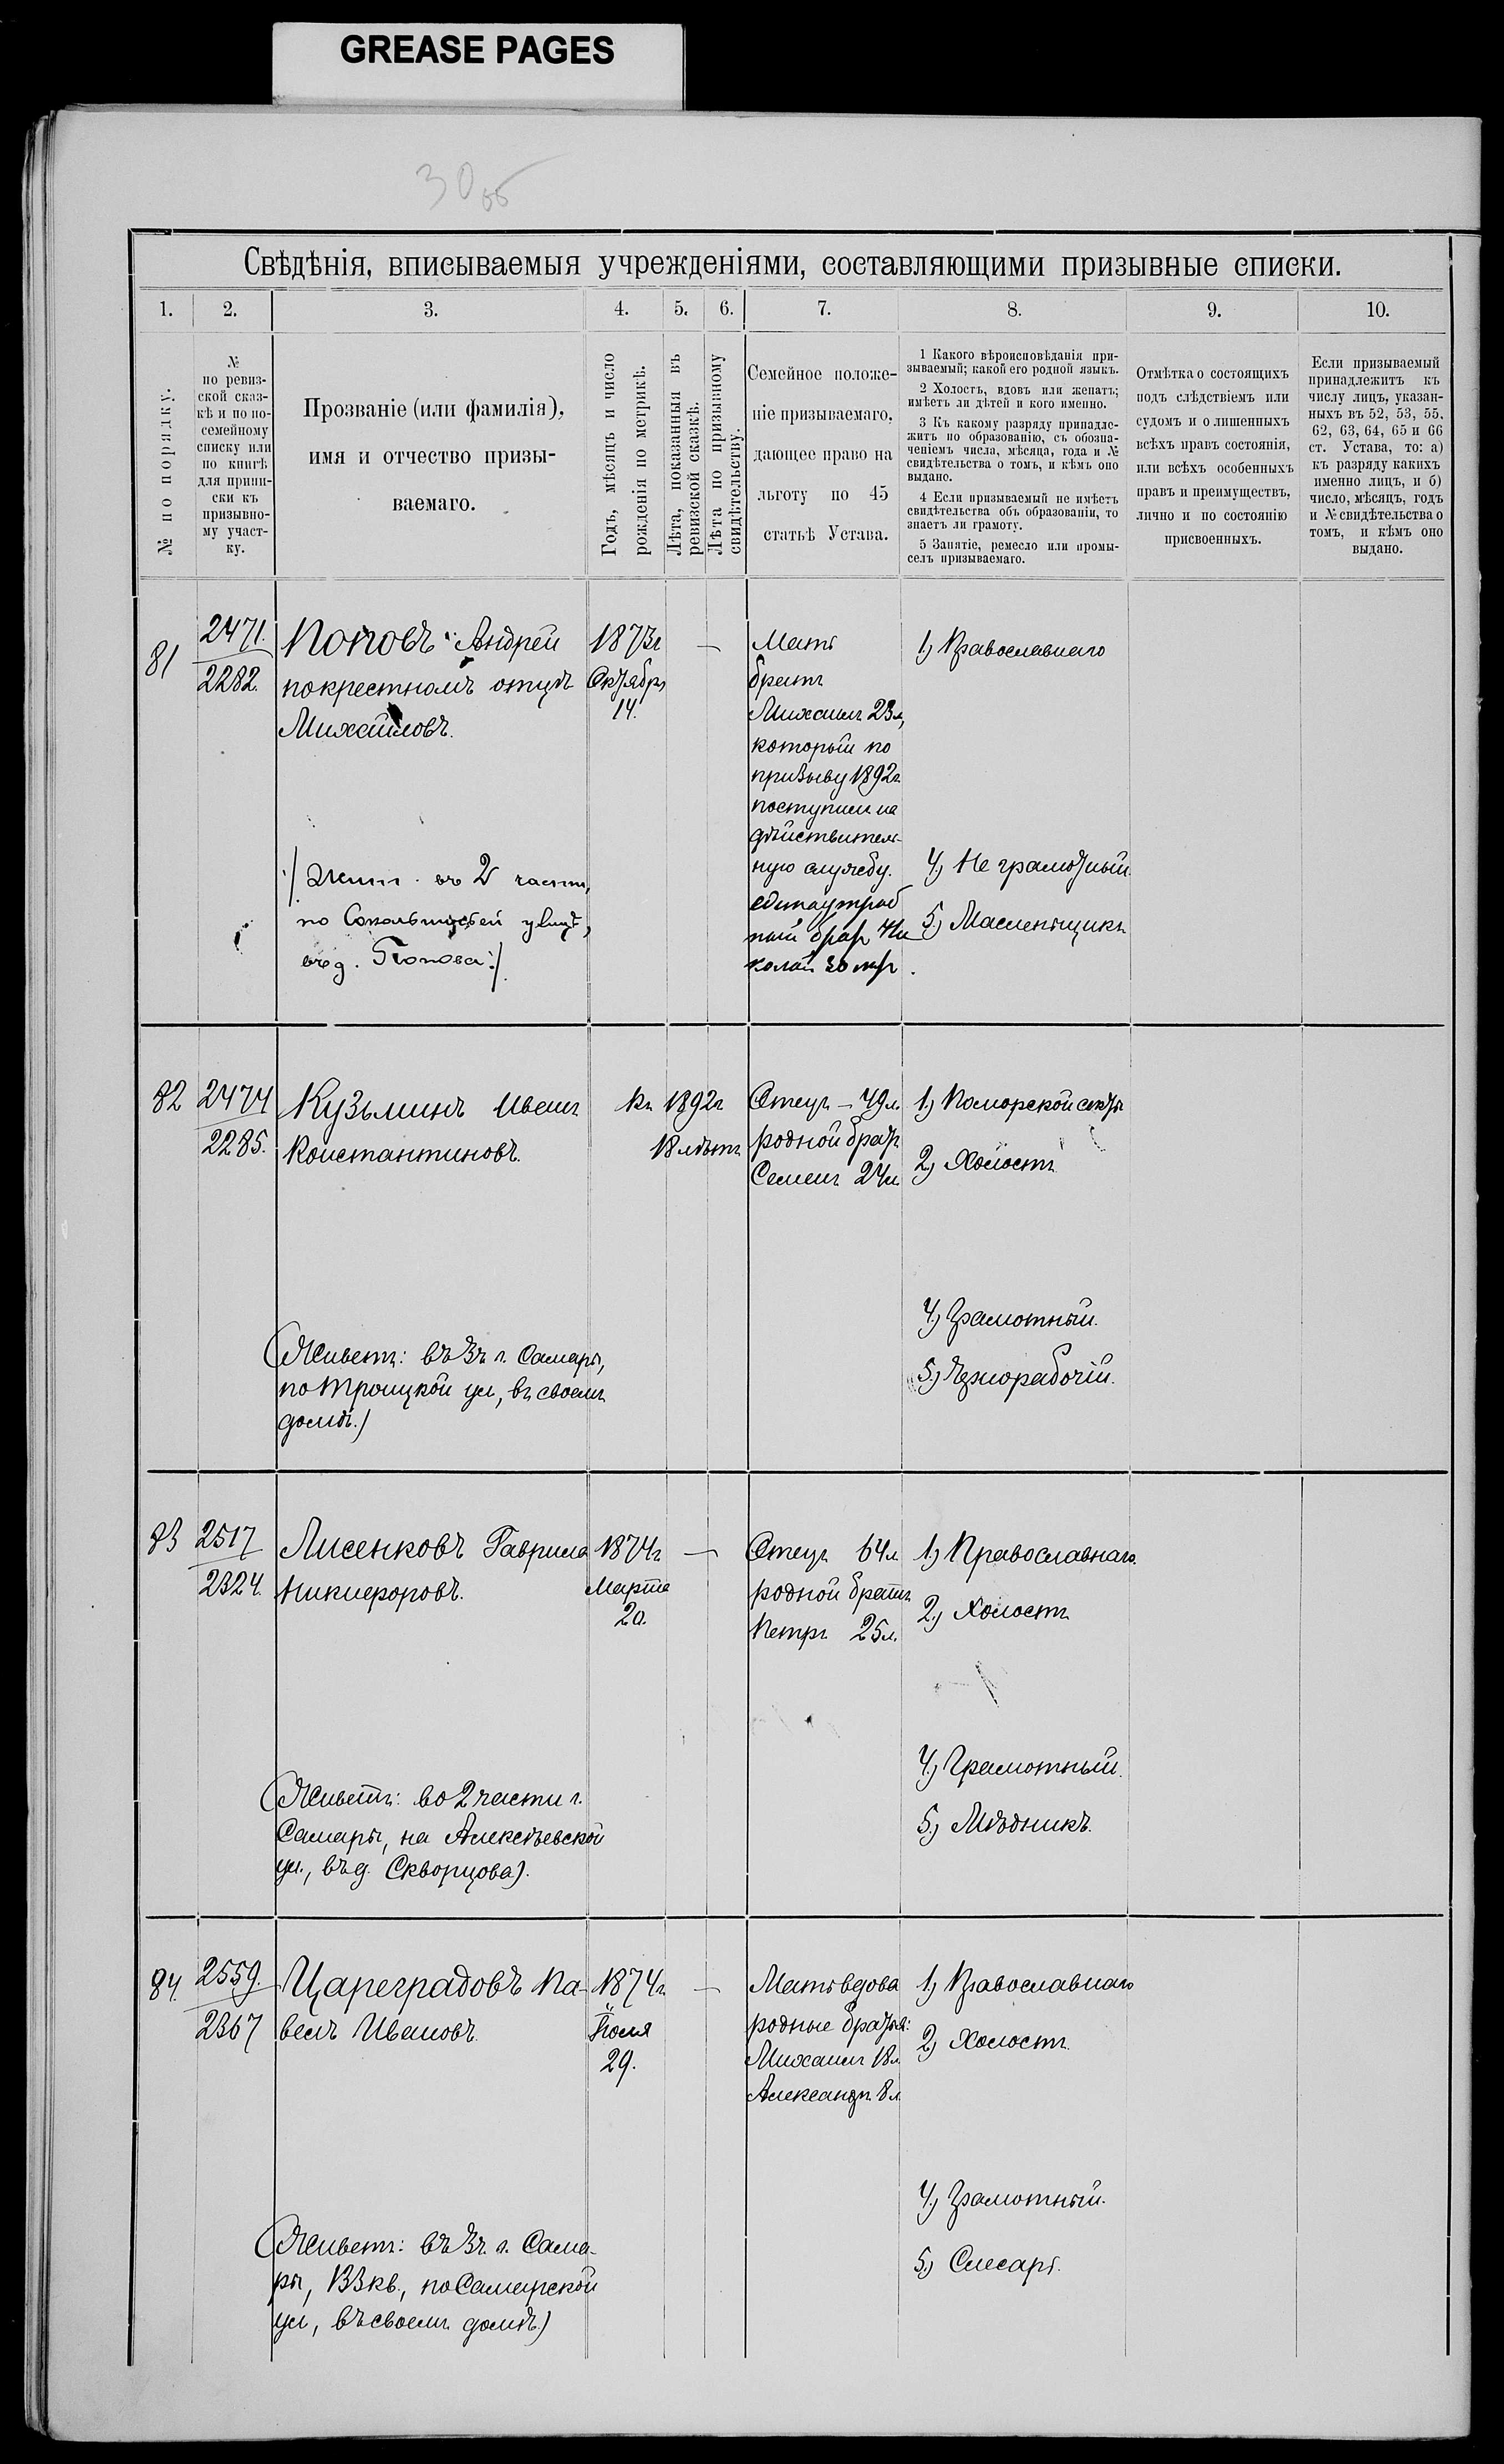 GREASE PAGES
30об
Свѣдѣнія, вписываемыя учрежденіями, составляющими призывные списки.
1. 2. 3. 4. 5. 6. 7. 8. 9. 10.
№ по порядку.
№
по ревиз-
ской сказ-
кѣ и по по-
семейному
списку или
по книгѣ
для припи-
ски къ
призывно-
му участ-
ку.
Прозваніе (или фамилія),
имя и отчество призы-
ваемаго.
Годъ, мѣсяцъ и число
рожденія по метрикѣ.
Лѣта, показанныя въ
ревизской сказкѣ.
Лѣта по призывному
свидѣтельству.
Семейное положе-
ніе призываемаго,
дающее право на
льготу по 45
статьѣ Устава.
1 Какого вѣроисповѣданія при-
зываемый; какой его родной языкъ.
2 Холостъ, вдовъ или женатъ;
имѣетъ ли дѣтей и кого именно.
3 Къ какому разряду принадле-
житъ по образованію, съ обозна-
ченіемъ числа, мѣсяца, года и №
свидѣтельства о томъ, и кѣмъ оно
выдано.
4 Если призываемый не имѣетъ
свидѣтельства объ образованіи, то
знаетъ ли грамоту.
5 Занятіе, ремесло или промы-
селъ призываемаго.
Отмѣтка о состоящихъ
подъ слѣдствіемъ или
судомъ и о лишенныхъ
всѣхъ правъ состоянія,
или всѣхъ особенныхъ
правъ и преимуществъ,
лично и по состоянію
присвоенныхъ.
Если призываемый
принадлежитъ къ
числу лицъ, указан-
ныхъ въ 52, 53, 55,
62, 63, 64, 65 и 66
ст. Устава, то: а)
къ разряду какихъ
именно лицъ, и б)
число, мѣсяцъ, годъ
и № свидѣтельства о
томъ, и кѣмъ оно
выдано.
81
2471.
2282.
Поповъ Андрей
по крестномъ отцѣ
Михайловъ.
/: Жит. во 2 части,
по улиц,
въ д. Попова :/
1873г
Октября
14.
—
Мать
братъ
Михаилъ 23л,
который по
призыву 1892г.
поступилъ на
дѣйствитель-
ную службу.
единоутроб
ный братъ Ни
колай
1) Православнаго
4) Не грамотный.
5) Масленщикъ
82
2474
2285.
Кузьминъ Иванъ
Константиновъ.
(Живетъ: въ 3ч. г. Самары,
по Троицкой ул, въ своемъ
домѣ.)
Къ 1892г
18 лѣтъ
Отецъ — 49л.
родной братъ
Семенъ 24л.
1) Поморской секты
2) Холостъ
4) Грамотный.
5) Чернорабочій.
83
2517
2324.
Лисенковъ Гаврила
Никифоровъ.
(Живетъ: во 2 части г.
Самары, на Алексѣевской
ул., въ д. Скворцова).
1874г
Марта
20.
—
Отецъ 64л
родной братъ
Петръ 25л.
1) Православнаго.
2) Холостъ
4) Грамотный.
5) Мѣдникъ.
84.
2559.
2367
Цареградовъ Па-
велъ Ивановъ.
(Живетъ: въ 3ч. г. Сама-
ры, 13 кв., по Самарской
ул, въ своемъ домѣ.)
1874г.
Іюля
29.
—
Мать вдова
родные братья:
Михаилъ 18л.
Александръ 8л.
1) Православнаго
2) Холостъ.
4) Грамотный.
5) Слесарь.